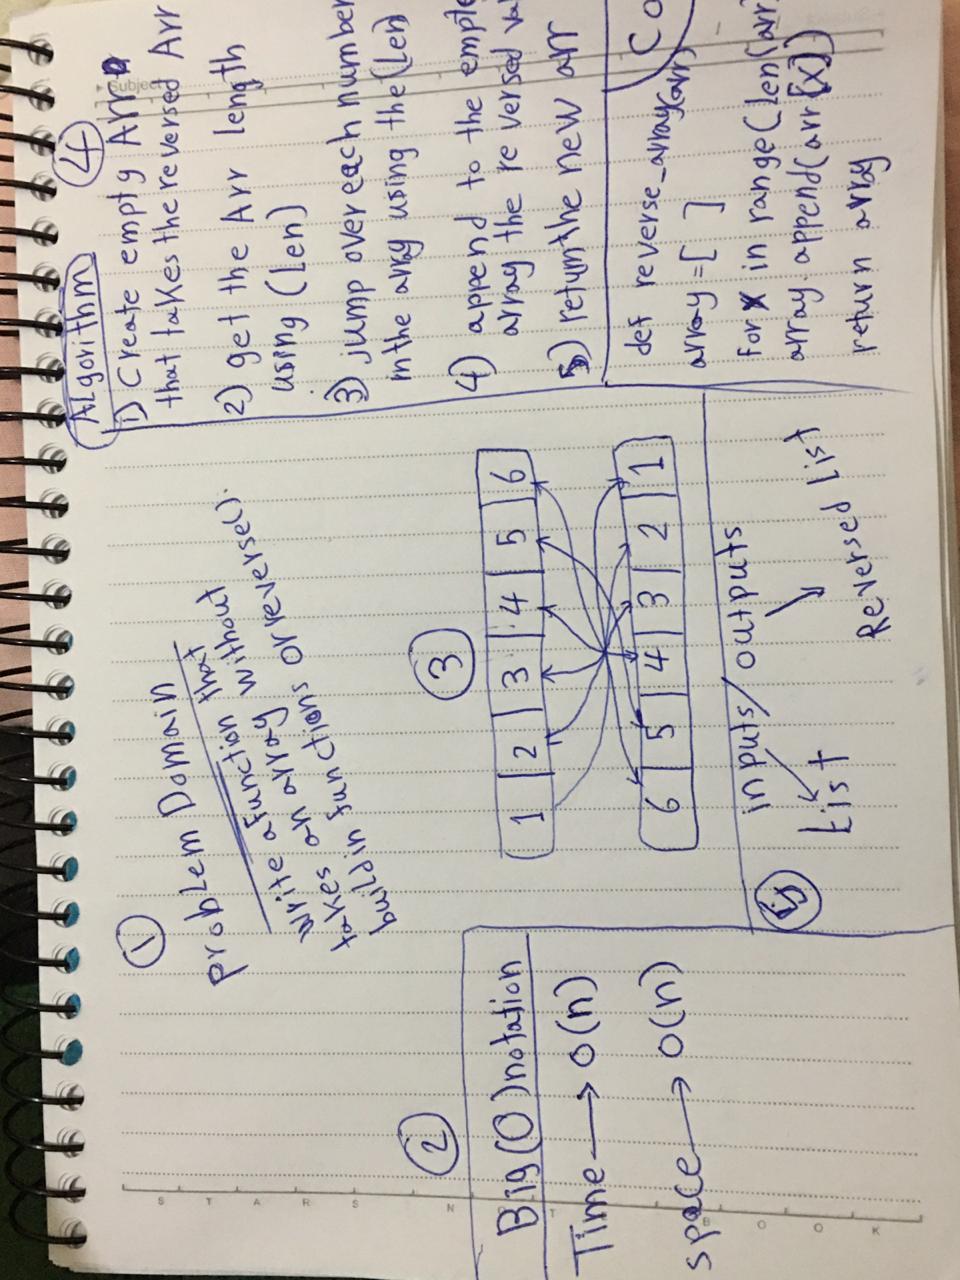 1
problem Domain
write a function that
takes an array without
build in functions or reverse().
2
Big(O)notation
Time → O(n)
space → O(n)
3
1 2 3 4 5 6
6 5 4 3 2 1
5
inputs/outputs
List
Reversed List
Algorithm 4
1) Create empty Arr
that takes the reversed Arr
2) get the Arr length
using (len)
3) jump over each number
in the array using the (len)
4) append to the empte
array the reversed val
5) return the new arr
Co
def reverse_array(arr)
array = [ ]
for x in range(len(arr)
array.append(arr[x])
return array